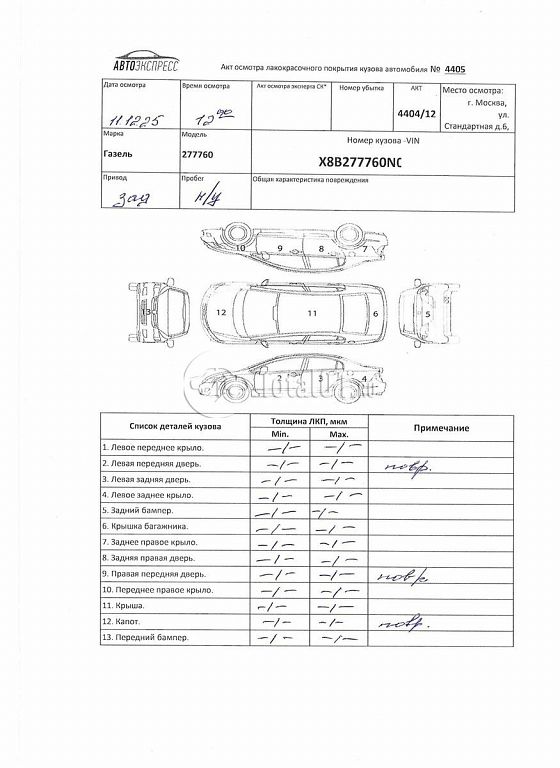 АВТОЭКСПРЕСС
Акт осмотра лакокрасочного покрытия кузова автомобиля № 4405
Дата осмотра Время осмотра Акт осмотра эксперта СК* Номер убытка АКТ Место осмотра:
г. Москва,
11.12.25 12 00 4404/12 ул.
Стандартная д.6,
Марка Модель Номер кузова -VIN
Газель 277760 X8B277760NC
Привод Пробег Общая характеристика повреждения
зад н/у
10 9 8 7
13 12 11 6 5
2 3 4
Total01
Список деталей кузова Толщина ЛКП, мкм Примечание
Min. Max.
1. Левое переднее крыло. —/— —/—
2. Левая передняя дверь. —/— —/— повр.
3. Левая задняя дверь. —/— —/—
4. Левое заднее крыло. —/— —/—
5. Задний бампер. —/— —/—
6. Крышка багажника. —/— —/—
7. Заднее правое крыло. —/— —/—
8. Задняя правая дверь. —/— —/—
9. Правая передняя дверь. —/— —/— повр
10. Переднее правое крыло. —/— —/—
11. Крыша. —/— —/—
12. Капот. —/— —/— повр.
13. Передний бампер. —/— —/—